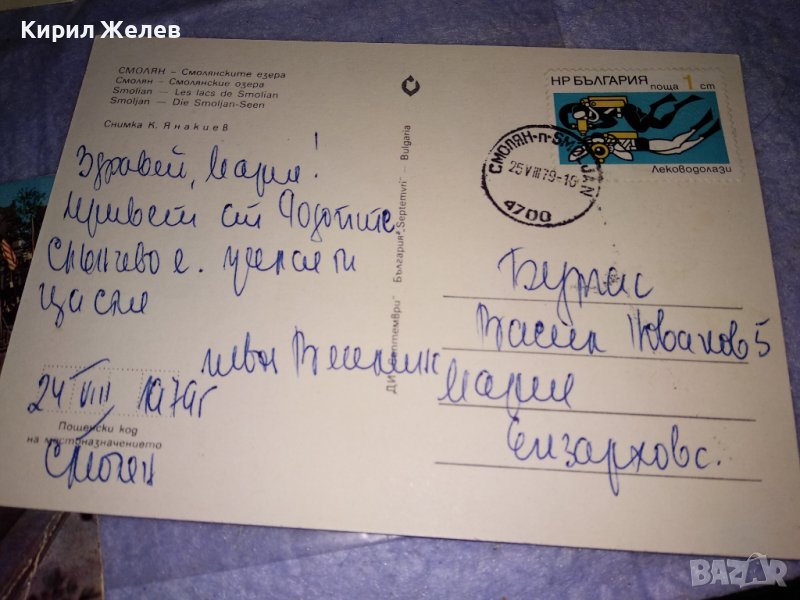 Кирил Желев
СМОЛЯН – Смолянските езера
Смолян – Смолянские озера
Smolian – Les lacs de Smolian
Smoljan – Die Smoljan-Seen
Снимка К. Янакиев
Здравей, Мария!
Привет от Родопите
Слънчево е.
щастие
Иван
24 VIII 1979г
Пощенски код
на местоназначението
Смолян
ДИ „Септември“ България „Septemvri“ – Bulgaria
НР БЪЛГАРИЯ
поща 1 ст
Леководолази
СМОЛЯН-п-SMOLJAN
25 VIII 79-10
4700
Бургас
Васил Новаков 5
Мария
Елзархова.
BAZAR